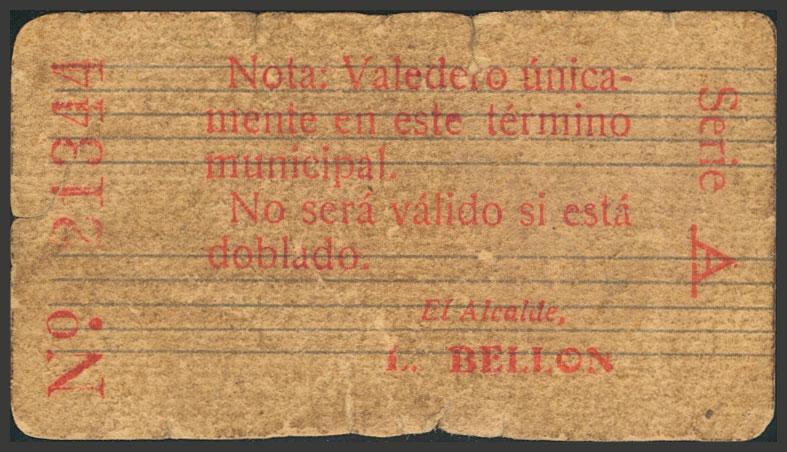 Nota: Valedero única-
mente en este término
municipal.
No será válido si está
doblado.
El Alcalde,
BELLON
Nº 21344
Serie A